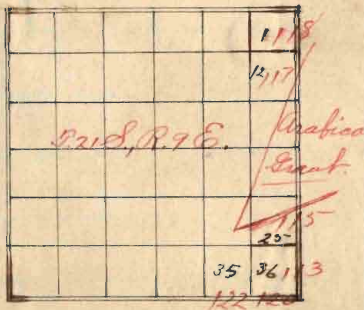 1 118
12 117
T. 21 S., R. 9 E.
Arabian
Grant.
115
25
35 36 113
122 120